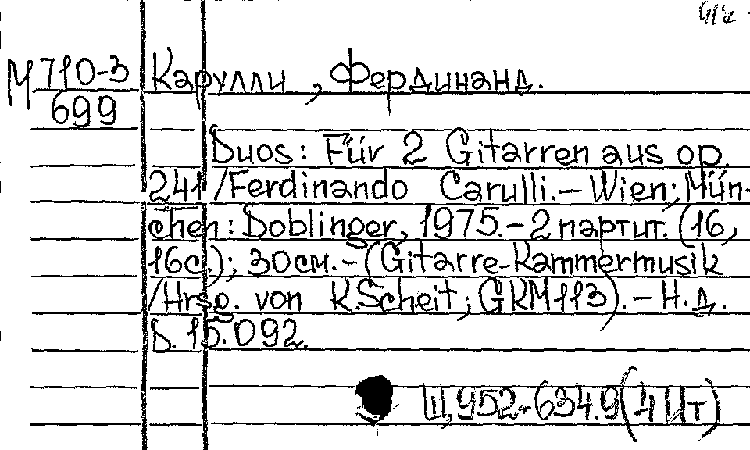 М 710-3
699
Карулли, Фердинанд.
Duos: Für 2 Gitarren aus op.
241 /Ferdinando Carulli.– Wien; Mün-
chen: Doblinger, 1975.– 2 партит. (16,
16с.); 30см.– (Gitarre-Kammermusik
/Hrsg. von K.Scheit; GKM113).– Н.д.
D. 15.092.
Щ952-634.9(4Ит)